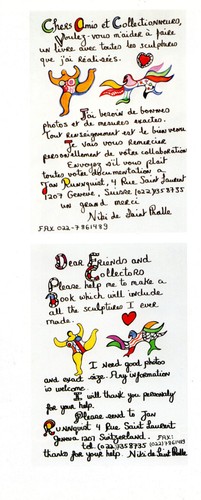 Chers Amis et Collectionneurs,
Voulez-vous m'aider à faire
un livre avec toutes les sculptures
que j'ai réalisées.
J'ai besoin de bonnes
photos et de mesures exactes.
Tout renseignement est le bien venu
Je vais vous remercier
personellement de votre collaboration
Envoyez s'il vous plait
toutes votre documentation a
Jan Runnquist, 4 Rue Saint Laurent
1207 Geneve, Suisse (022)7358735
un grand merci
Niki de Saint Phalle
FAX 022-7861489
Dear Friends and
Collectors
Please help me to make a
Book which will include
all the sculptures I ever
made.
I need good photos
and exact size. Any information
is welcome
I will thank you personaly
for your help.
Please send to Jan
Runnquist 4 Rue Saint Laurent
Geneva 1207 Switzerland. FAX:
tel. (022)7358735 (022)7861489
thanks for your help. Niki de Saint Phalle